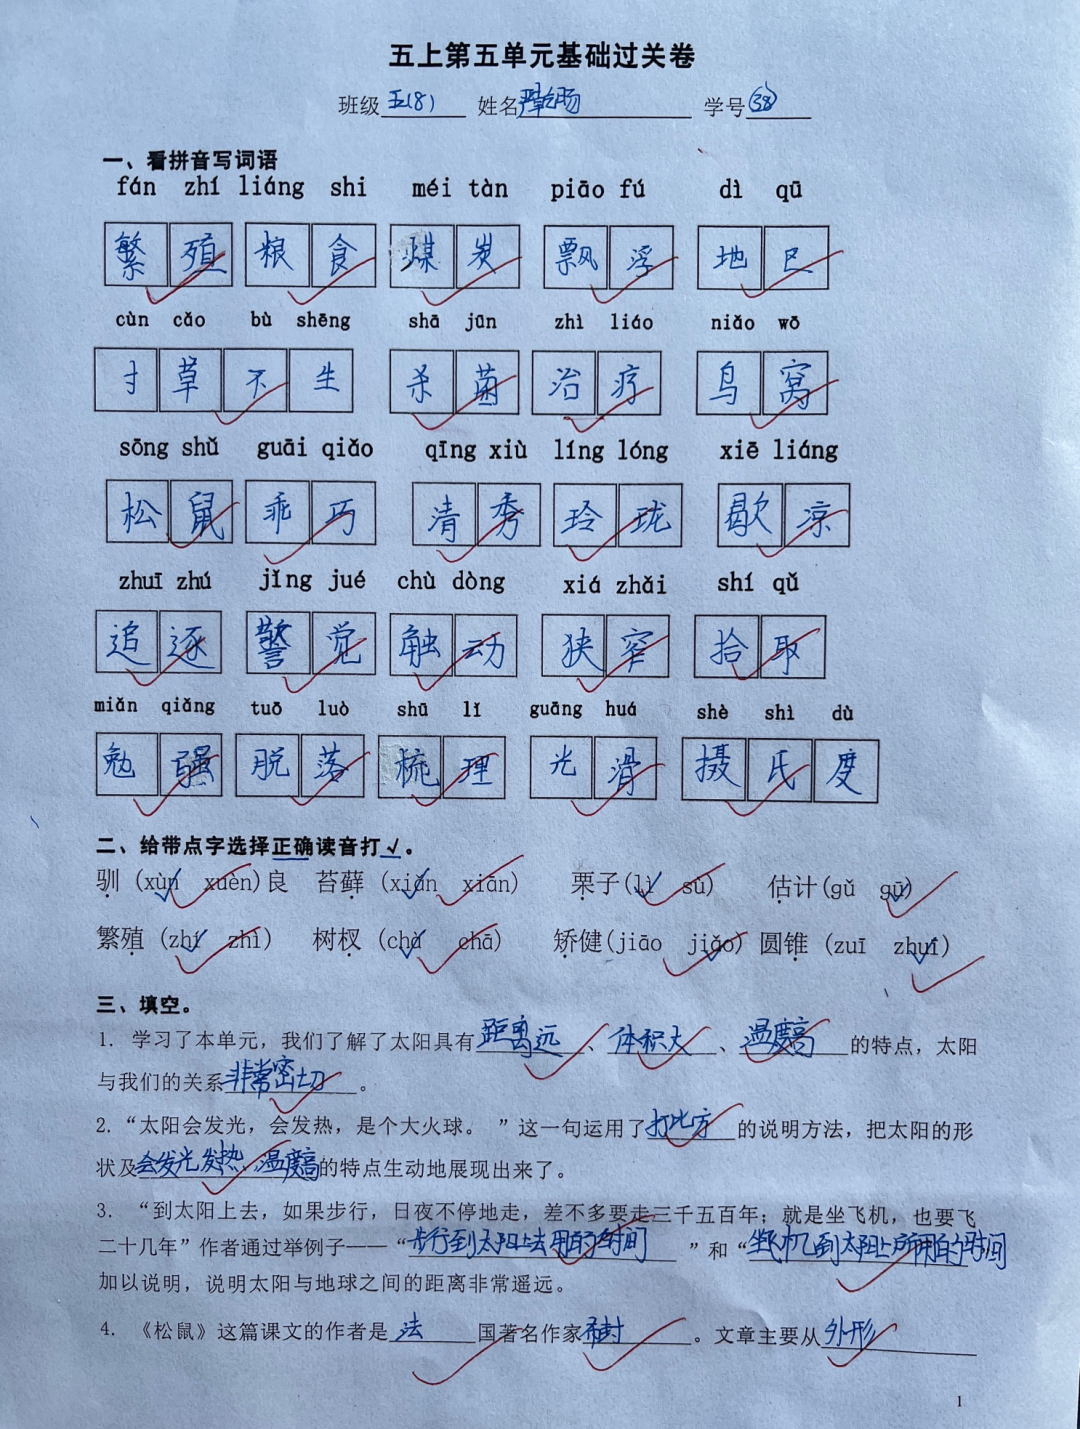 五上第五单元基础过关卷
班级 五(8) 姓名 学号 38
一、看拼音写词语
fán zhí liáng shi méi tàn piāo fú dì qū
繁殖 粮食 煤炭 飘浮 地区
cùn cǎo bù shēng shā jūn zhì liáo niǎo wō
寸草不生 杀菌 治疗 鸟窝
sōng shǔ guāi qiǎo qīng xiù líng lóng xiē liáng
松鼠 乖巧 清秀 玲珑 歇凉
zhuī zhú jǐng jué chù dòng xiá zhǎi shí qǔ
追逐 警觉 触动 狭窄 拾取
miǎn qiǎng tuō luò shū lǐ guāng huá shè shì dù
勉强 脱落 梳理 光滑 摄氏度
二、给带点字选择正确读音打√。
驯（xùn√ xuèn）良 苔藓（xiǎn√ xiān） 栗子(lì√ sù) 估计(gǔ gū√)
繁殖（zhí√ zhì） 树杈（chà√ chā） 矫健(jiāo jiǎo√) 圆锥（zuī zhuī√）
三、填空。
1. 学习了本单元，我们了解了太阳具有 距离远 、 体积大 、 温度高 的特点，太阳
与我们的关系 非常密切 。
2.“太阳会发光，会发热，是个大火球。”这一句运用了 打比方 的说明方法，把太阳的形
状及 会发光发热、温度高 的特点生动地展现出来了。
3. “到太阳上去，如果步行，日夜不停地走，差不多要走三千五百年；就是坐飞机，也要飞
二十几年”作者通过举例子——“ 步行到太阳上去用的时间 ”和“ 坐飞机到太阳上所用的时间 ”
加以说明，说明太阳与地球之间的距离非常遥远。
4. 《松鼠》这篇课文的作者是 法 国著名作家 布封 。文章主要从 外形
1